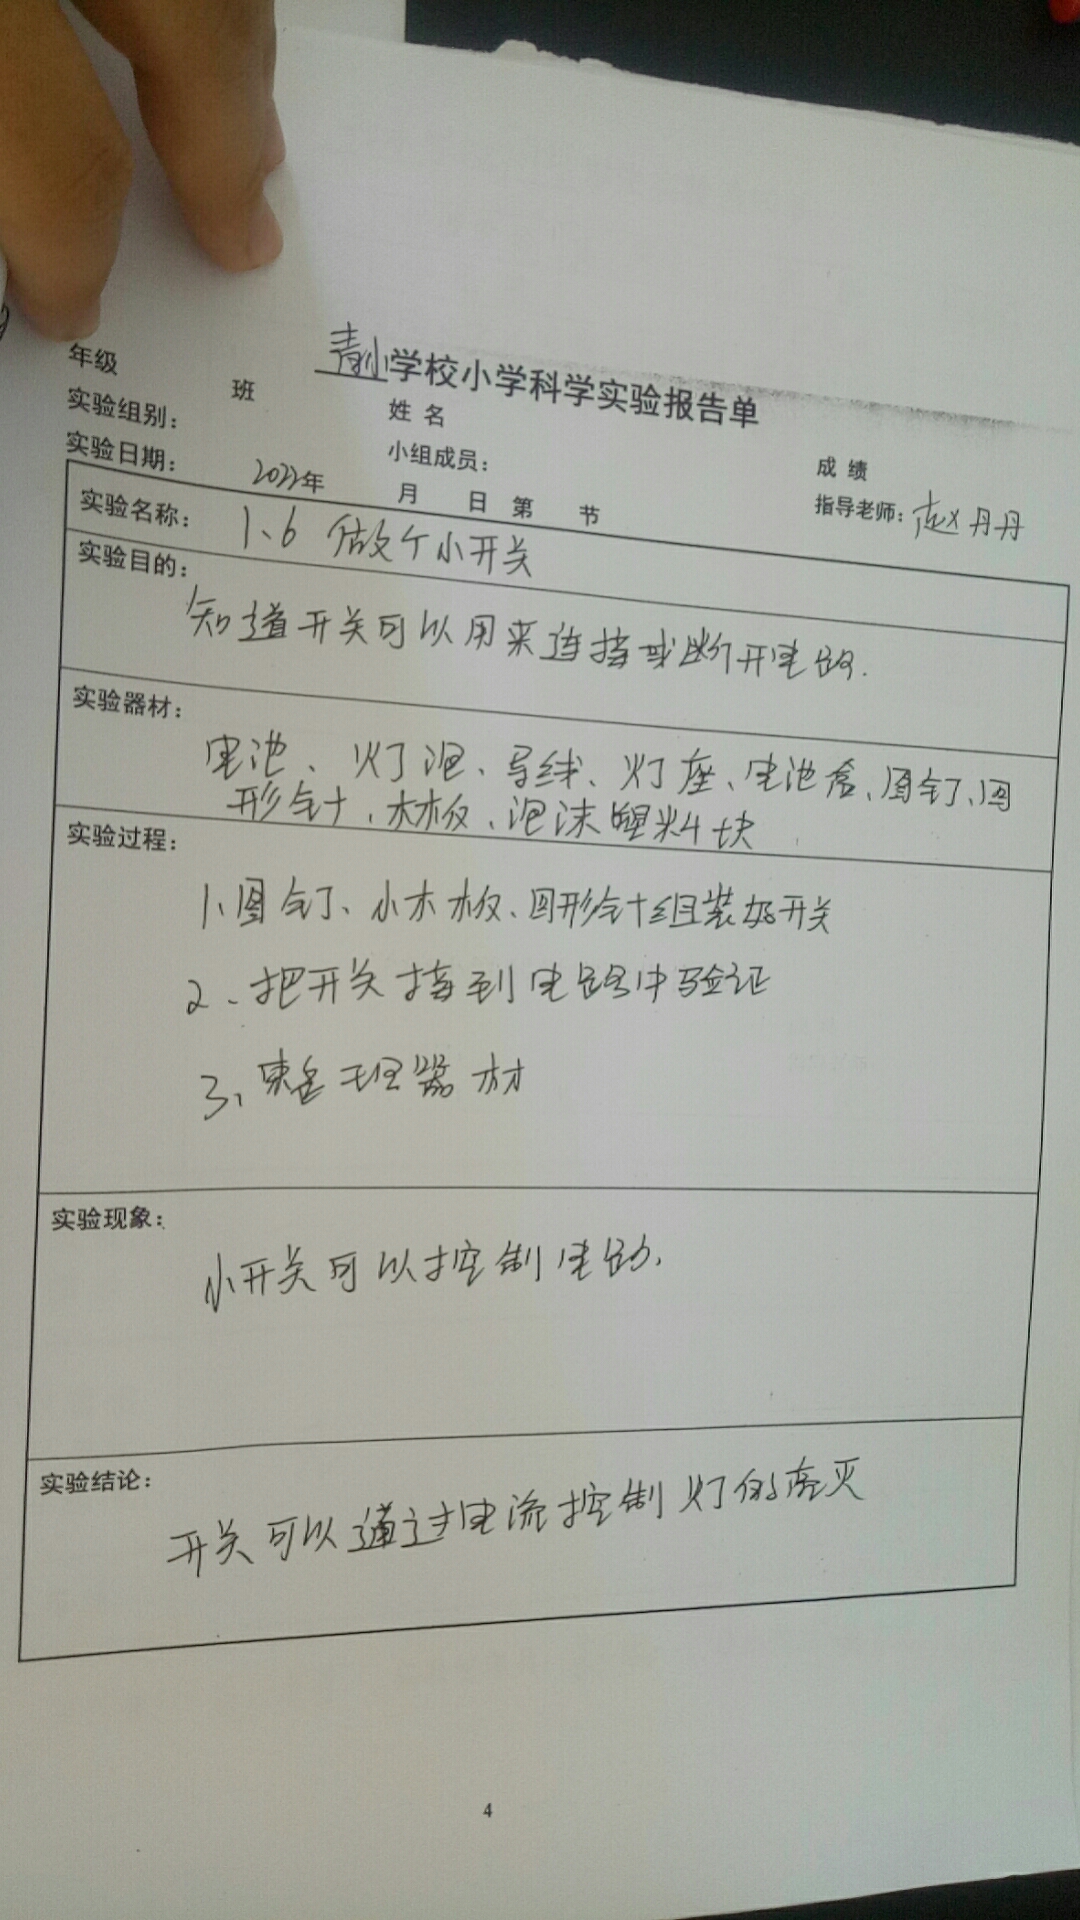 青小学校小学科学实验报告单
年级 班 姓名 成绩
实验组别： 小组成员： 指导老师：赵丹丹
实验日期： 2022年 月 日 第 节
实验名称： 1、6 做个小开关
实验目的：
知道开关可以用来连接或断开电路.
实验器材：
电池、灯泡、导线、灯座、电池盒、图钉、回
形针、木板、泡沫塑料块
实验过程：
1、图钉、小木板、回形针组装好开关
2、把开关接到电路中验证
3、整理器材
实验现象：
小开关可以控制电路.
实验结论：
开关可以通过电流控制灯的亮灭
4